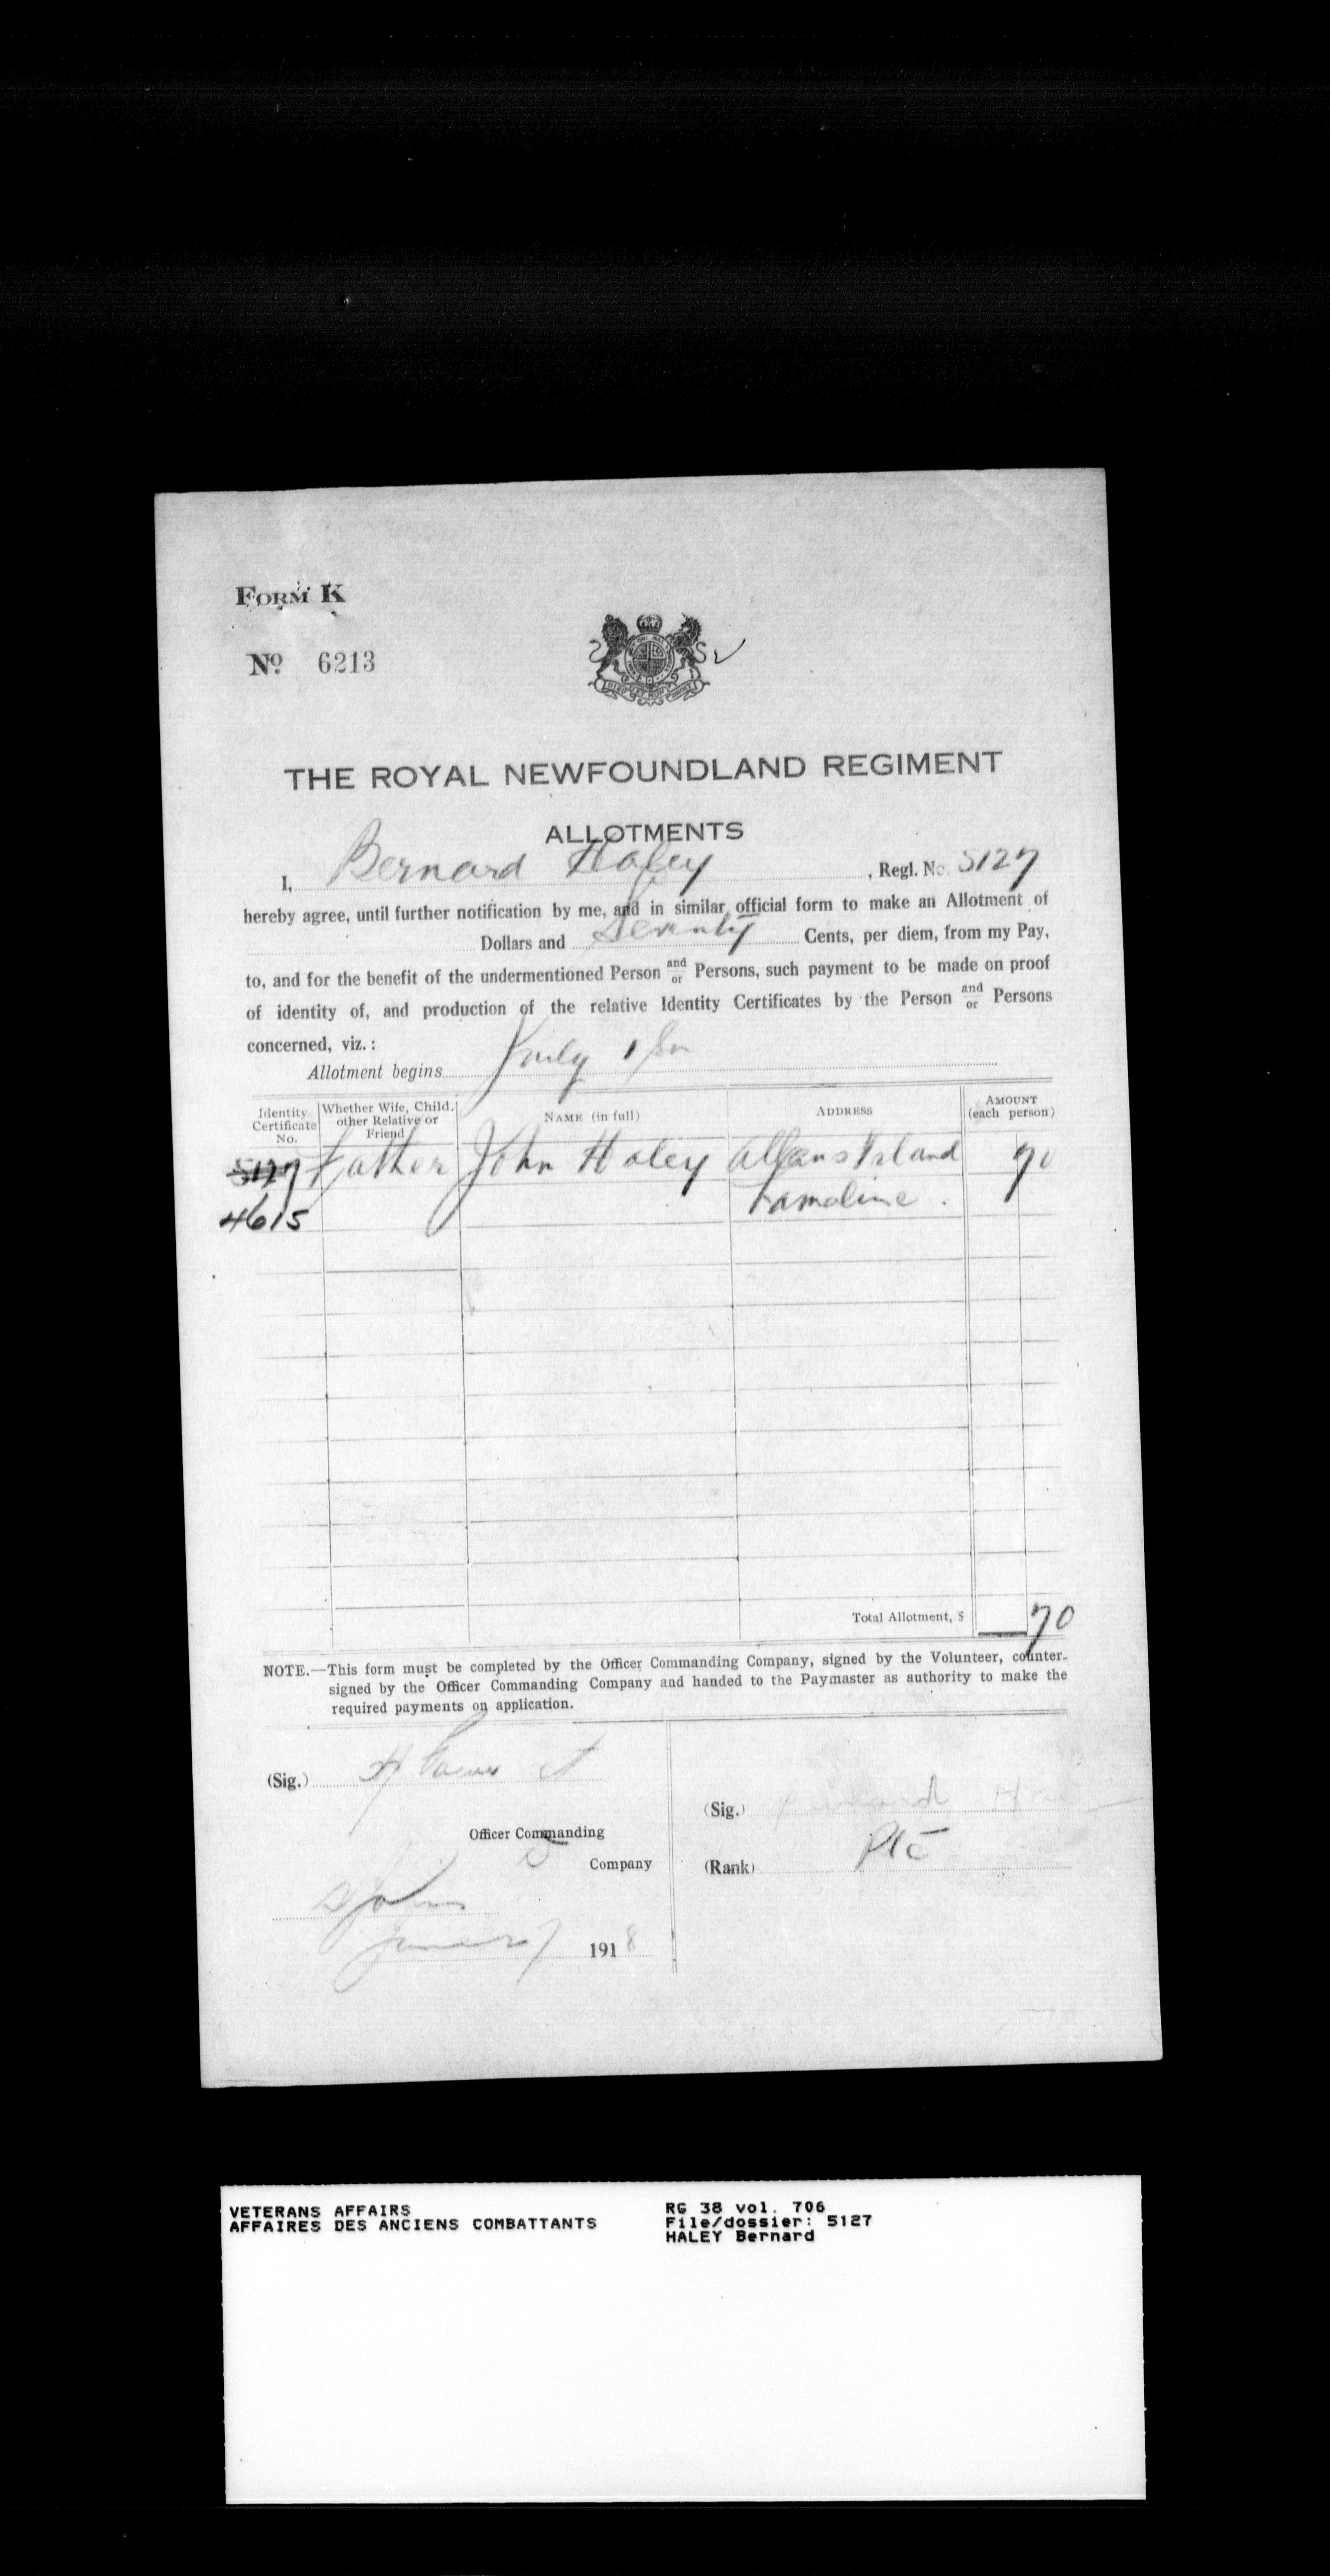 FORM K
No 6213
THE ROYAL NEWFOUNDLAND REGIMENT
ALLOTMENTS
I, Bernard Haley, Regl. No. 5127
hereby agree, until further notification by me, and in similar official form to make an Allotment of
Dollars and Seventy Cents, per diem, from my Pay,
to, and for the benefit of the undermentioned Person and/or Persons, such payment to be made on proof
of identity of, and production of the relative Identity Certificates by the Person and/or Persons
concerned, viz.:
Allotment begins July 1
Identity Certificate No. Whether Wife, Child, other Relative or Friend NAME (in full) ADDRESS AMOUNT (each person)
5127 Father John Haley Allans Island 70
4615 Lamaline.
Total Allotment, $ 70
NOTE.—This form must be completed by the Officer Commanding Company, signed by the Volunteer, counter-
signed by the Officer Commanding Company and handed to the Paymaster as authority to make the
required payments on application.
(Sig.)
Officer Commanding
Company
(Sig.) Bernard
(Rank) Pte
St Johns
June 27 1918
VETERANS AFFAIRS
AFFAIRES DES ANCIENS COMBATTANTS
RG 38 vol. 706
File/dossier: 5127
HALEY Bernard